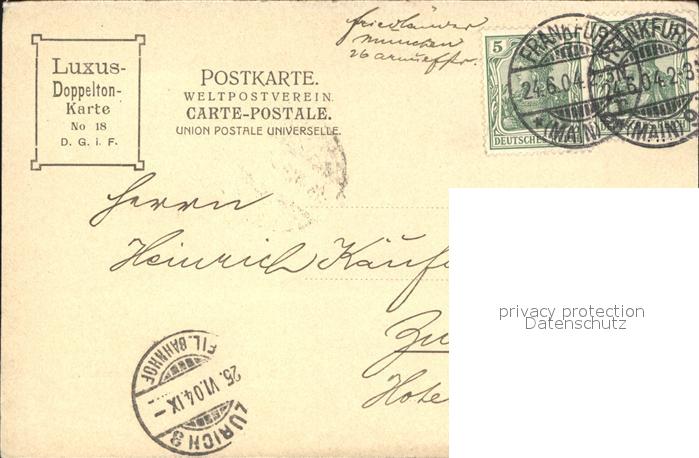 Luxus-
Doppelton-
Karte
No 18
D. G. i. F.
POSTKARTE.
WELTPOSTVEREIN.
CARTE-POSTALE.
UNION POSTALE UNIVERSELLE.
Friedländer
München
26
5
DEUTSCHES
FRANKFURT
24.6.04.
*(MAIN)
FRANKFURT
24.6.04.2-3N.
*(MAIN)
Herrn
Heinrich
privacy protection
Datenschutz
Hote
ZÜRICH 8
25.VI.04.IX-
FIL. BAHNHOF